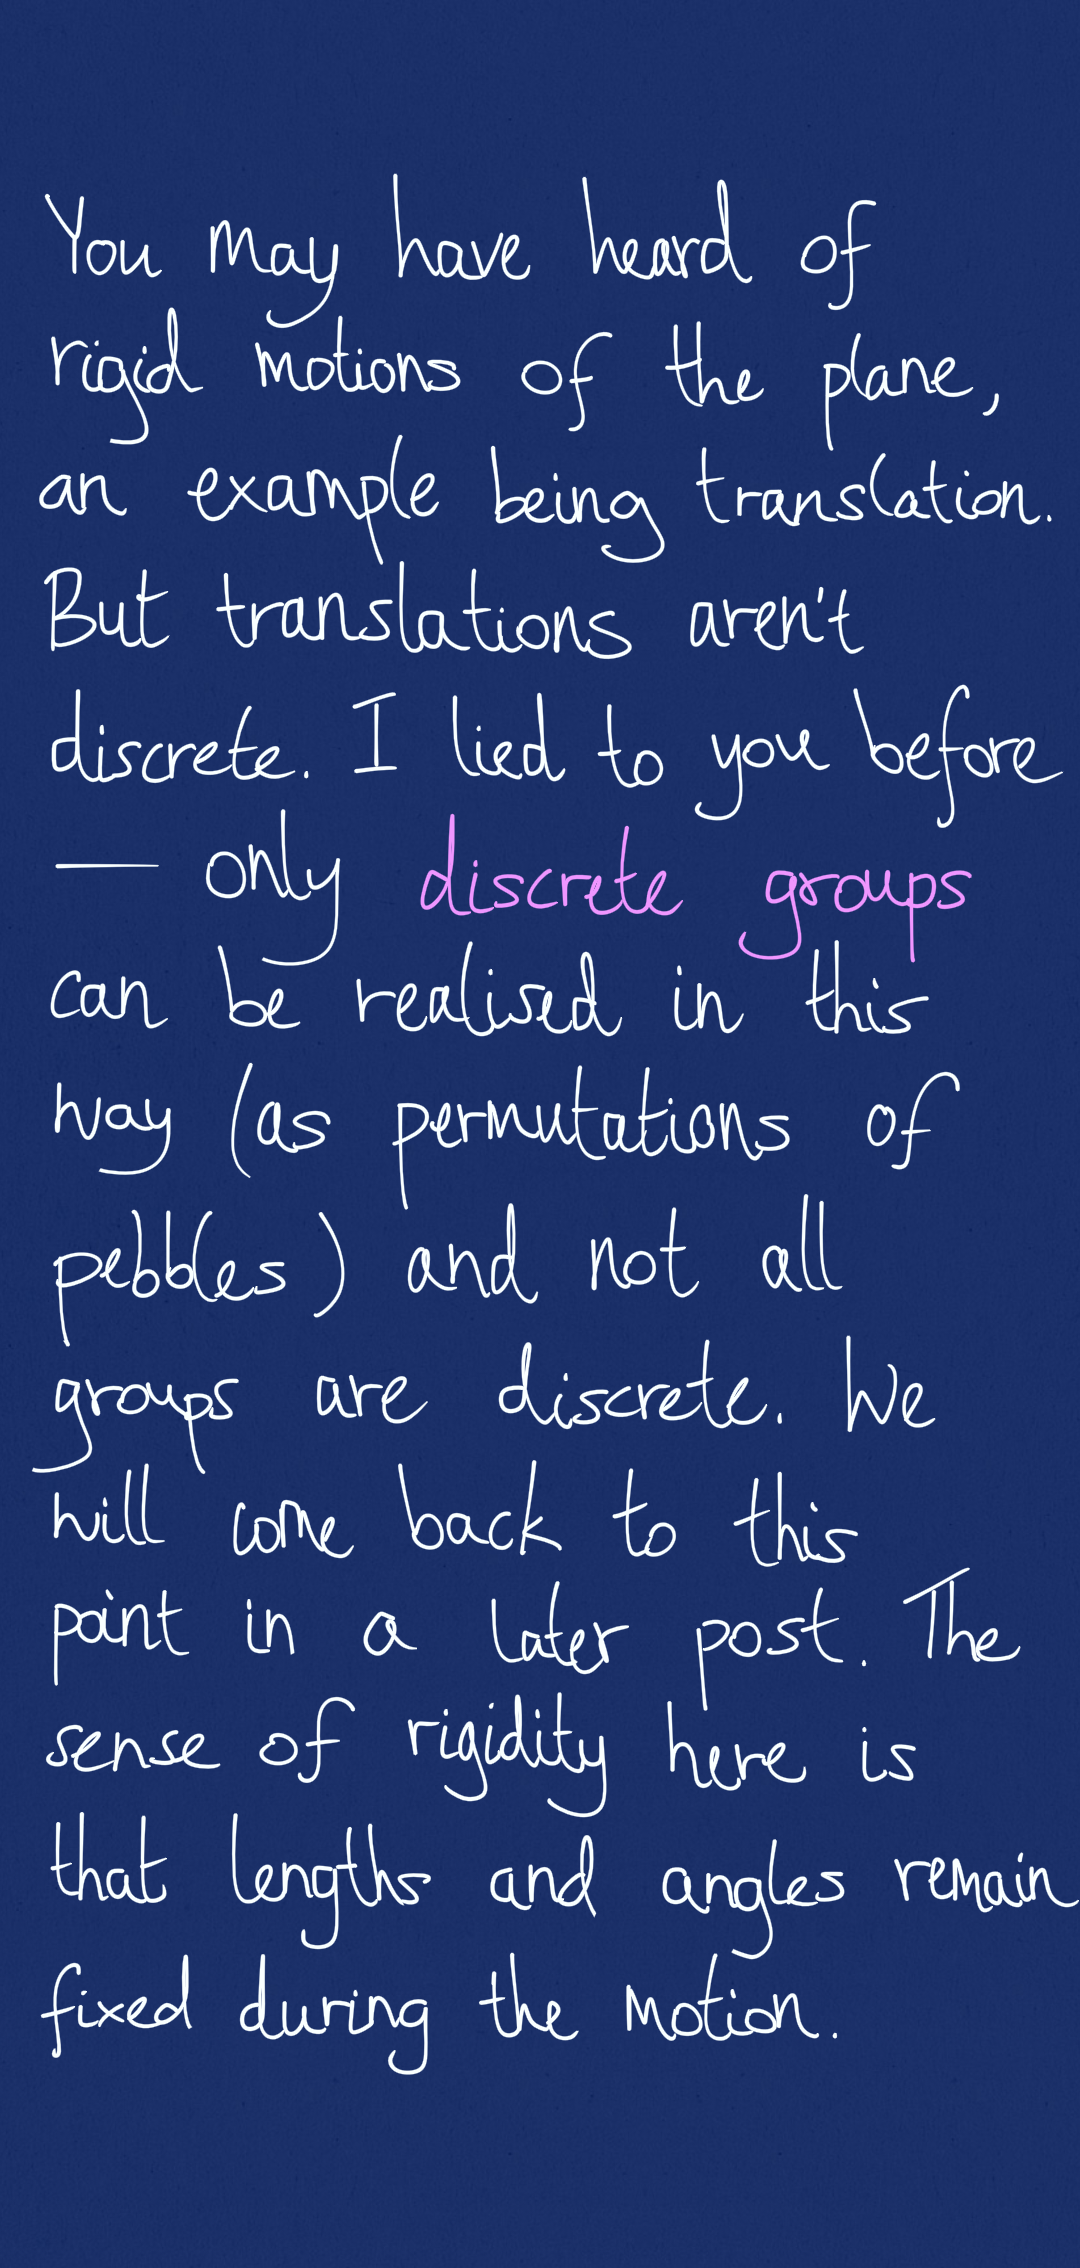 You may have heard of
rigid motions of the plane,
an example being translation.
But translations aren't
discrete. I lied to you before
— only discrete groups
can be realised in this
way (as permutations of
pebbles) and not all
groups are discrete. We
will come back to this
point in a later post. The
sense of rigidity here is
that lengths and angles remain
fixed during the motion.